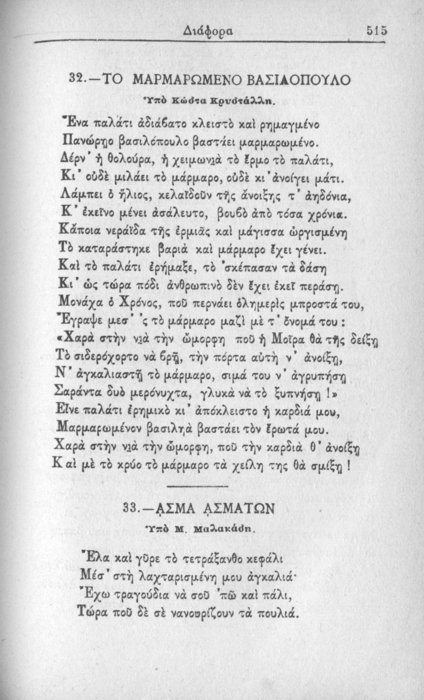 Διάφορα 515
32.—ΤΟ ΜΑΡΜΑΡΩΜΕΝΟ ΒΑΣΙΛΟΠΟΥΛΟ
Ὑπὸ Κώστα Κρυστάλλη.
Ἕνα παλάτι ἀδιάβατο κλειστὸ καὶ ρημαγμένο
Πανώρῃο βασιλόπουλο βαστάει μαρμαρωμένο.
Δέρν' ἡ θολούρα, ἡ χειμωνιὰ τὸ ἔρμο τὸ παλάτι,
Κι' οὐδὲ μιλάει τὸ μάρμαρο, οὐδὲ κι' ἀνοίγει μάτι.
Λάμπει ὁ ἥλιος, κελαϊδοῦν τῆς ἄνοιξης τ' ἀηδόνια,
Κ' ἐκεῖνο μένει ἀσάλευτο, βουβὸ ἀπὸ τόσα χρόνια.
Κάποια νεράϊδα τῆς ἐρμιᾶς καὶ μάγισσα ὠργισμένη
Τὸ καταράστηκε βαριὰ καὶ μάρμαρο ἔχει γένει.
Καὶ τὸ παλάτι ἐρήμαξε, τὸ 'σκέπασαν τὰ δάση
Κι' ὡς τώρα πόδι ἀνθρωπινὸ δὲν ἔχει ἐκεῖ περάσῃ.
Μονάχα ὁ Χρόνος, ποῦ περνάει ὁλημερὶς μπροστά του,
Ἔγραψε μεσ' 'ς τὸ μάρμαρο μαζὶ μὲ τ' ὄνομά του :
«Χαρὰ στὴν νιὰ τὴν ὤμορφη ποῦ ἡ Μοῖρα θὰ τῆς δείξῃ
Τὸ σιδερόχορτο νὰ βρῇ, τὴν πόρτα αὐτὴ ν' ἀνοίξῃ,
Ν' ἀγκαλιαστῇ τὸ μάρμαρο, σιμά του ν' ἀγρυπήσῃ
Σαράντα δυὸ μερόνυχτα, γλυκὰ νὰ τὸ ξυπνήσῃ !»
Εἶνε παλάτι ἐρημικὸ κι' ἀπόκλειστο ἡ καρδιά μου,
Μαρμαρωμένον βασιλῃὰ βαστάει τὸν ἔρωτά μου.
Χαρὰ στὴν νιὰ τὴν ὤμορφη, ποῦ τὴν καρδιὰ θ' ἀνοίξῃ
Καὶ μὲ τὸ κρύο τὸ μάρμαρο τὰ χείλη της θὰ σμίξῃ !
33.—ᾈΣΜΑ ᾈΣΜΑΤΩΝ
Ὑπὸ Μ. Μαλακάση.
Ἔλα καὶ γῦρε τὸ τετράξανθο κεφάλι
Μέσ' στὴ λαχταρισμένη μου ἀγκαλιά·
Ἔχω τραγούδια νὰ σοῦ 'πῶ καὶ πάλι,
Τώρα ποῦ δὲ σὲ νανουρίζουν τὰ πουλιά.